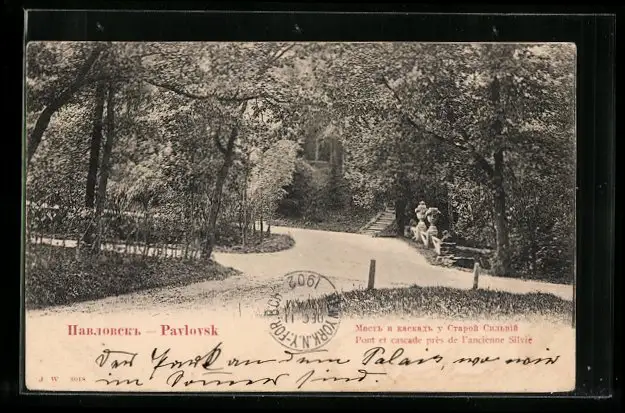 Павловскъ — Pavlovsk
Мостъ и каскадъ у Старой Сильвіи
Pont et cascade près de l'ancienne Silvie
NEW YORK, N.Y.
1902
Der Park an dem Palais, wo wir
im Sommer sind.
J. W.